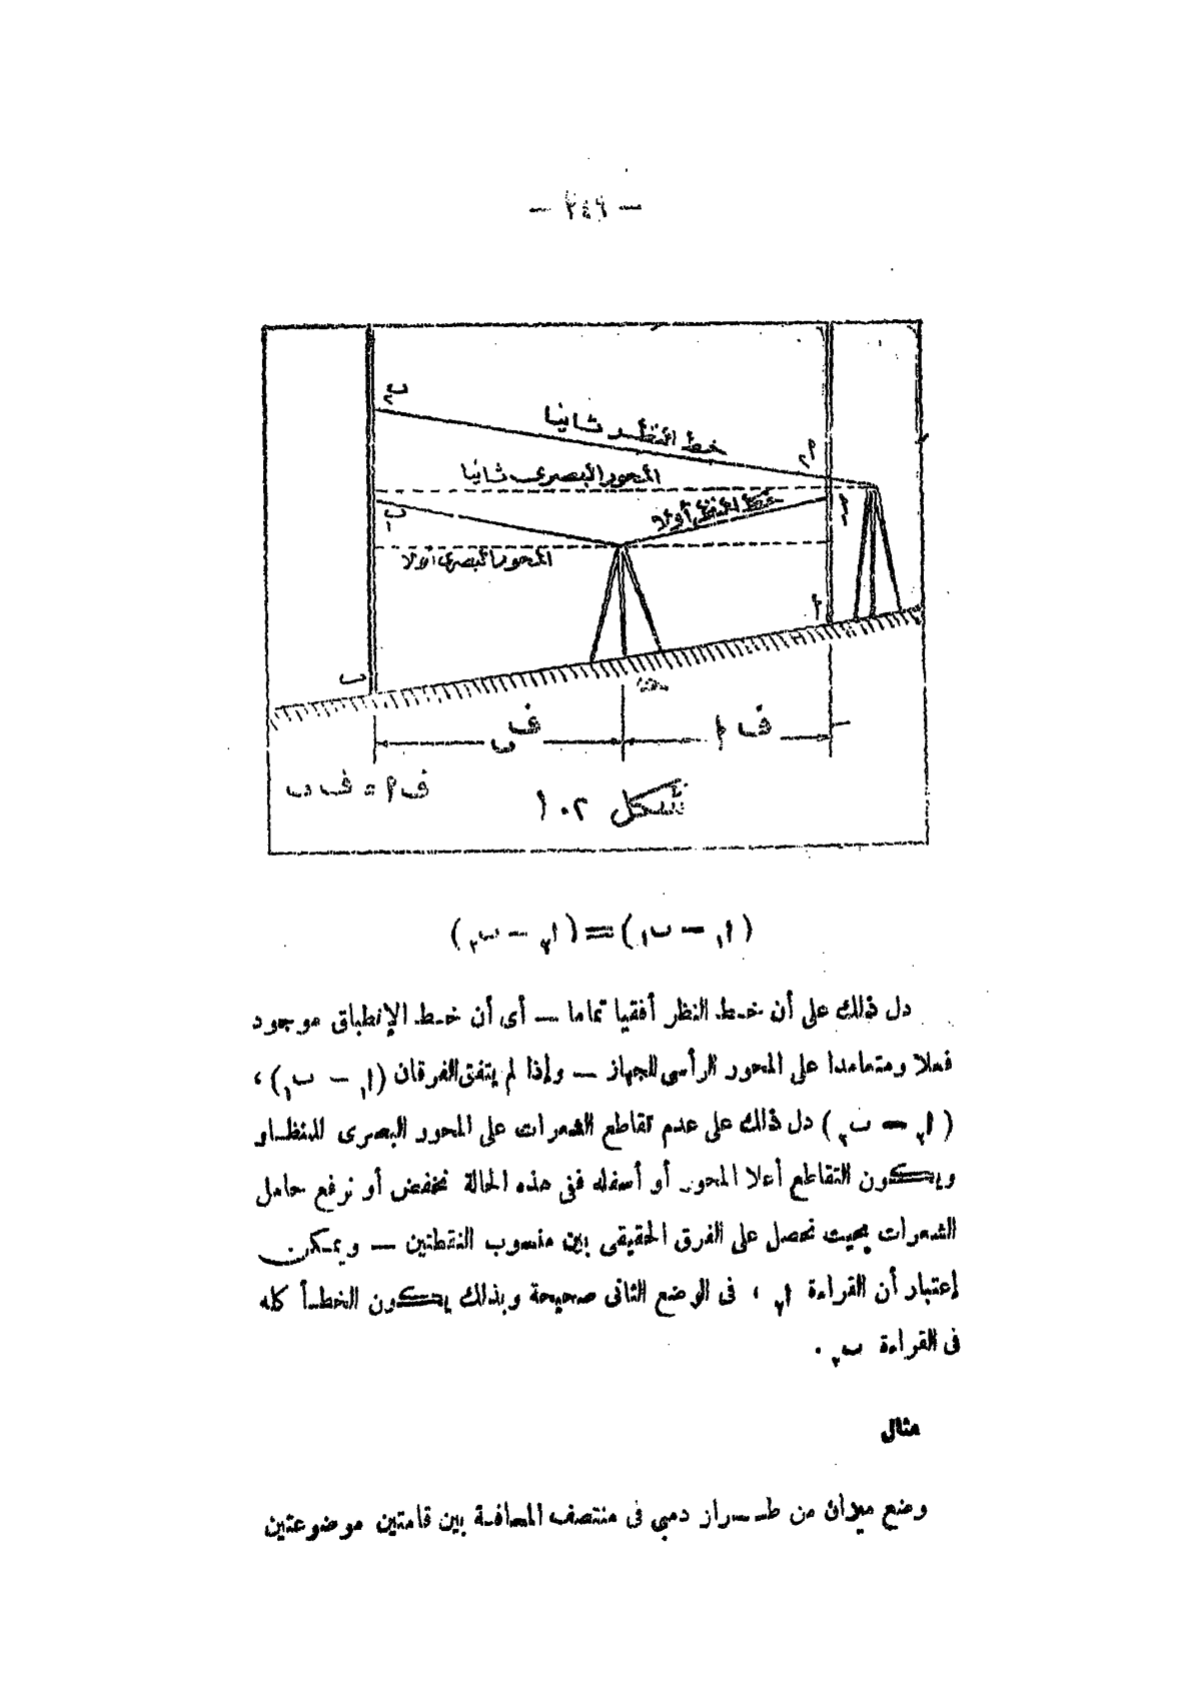 — ٢٤٦ —
ب٢
خط النظر ثانيا
ا٢
المحور البصرى ثانيا
خط النظر أولا
ب١
المحور البصرى أولا
ا
ب
ف ب
ف ا
ف ا = ف ب
شكل ١٠٢
(ا١ — ب١) = (ا٢ — ب٢)
دل ذلك على أن خط النظر أفقيا تماما — أى أن خط الإنطباق موجود
فعلا ومتعامدا على المحور الرأسى للجهاز — وإذا لم يتفق الفرقان (ا١ — ب١) ،
(ا٢ — ب٢) دل ذلك على عدم تقاطع الشعرات على المحور البصرى للمنظار
ويكون التقاطع أعلا المحور أو أسفله ففى هذه الحالة نخفض أو نرفع حامل
الشعرات بحيث نحصل على الفرق الحقيقى بين منسوب النقطتين — ويمكن
إعتبار أن القراءة ا٢ ، فى الوضع الثانى صحيحة وبذلك يكون الخطأ كله
فى القراءة ب٢ .
مثال
وضع ميزان من طراز دمبى فى منتصف المسافة بين قامتين موضوعتين